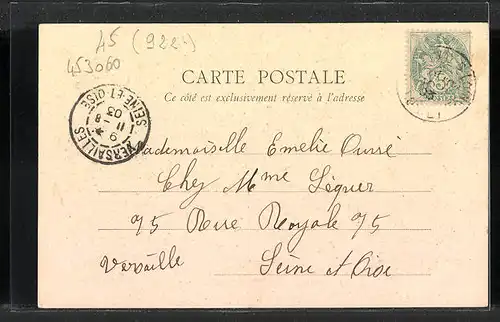 A5 (922)
453060
CARTE POSTALE
Ce côté est exclusivement réservé à l'adresse
VERSAILLES
SEINE-ET-OISE
9
11
03
Mademoiselle Emelie
Chez Mme Léguer
75 Rue Royale 75
Versaille
Seine et Oise